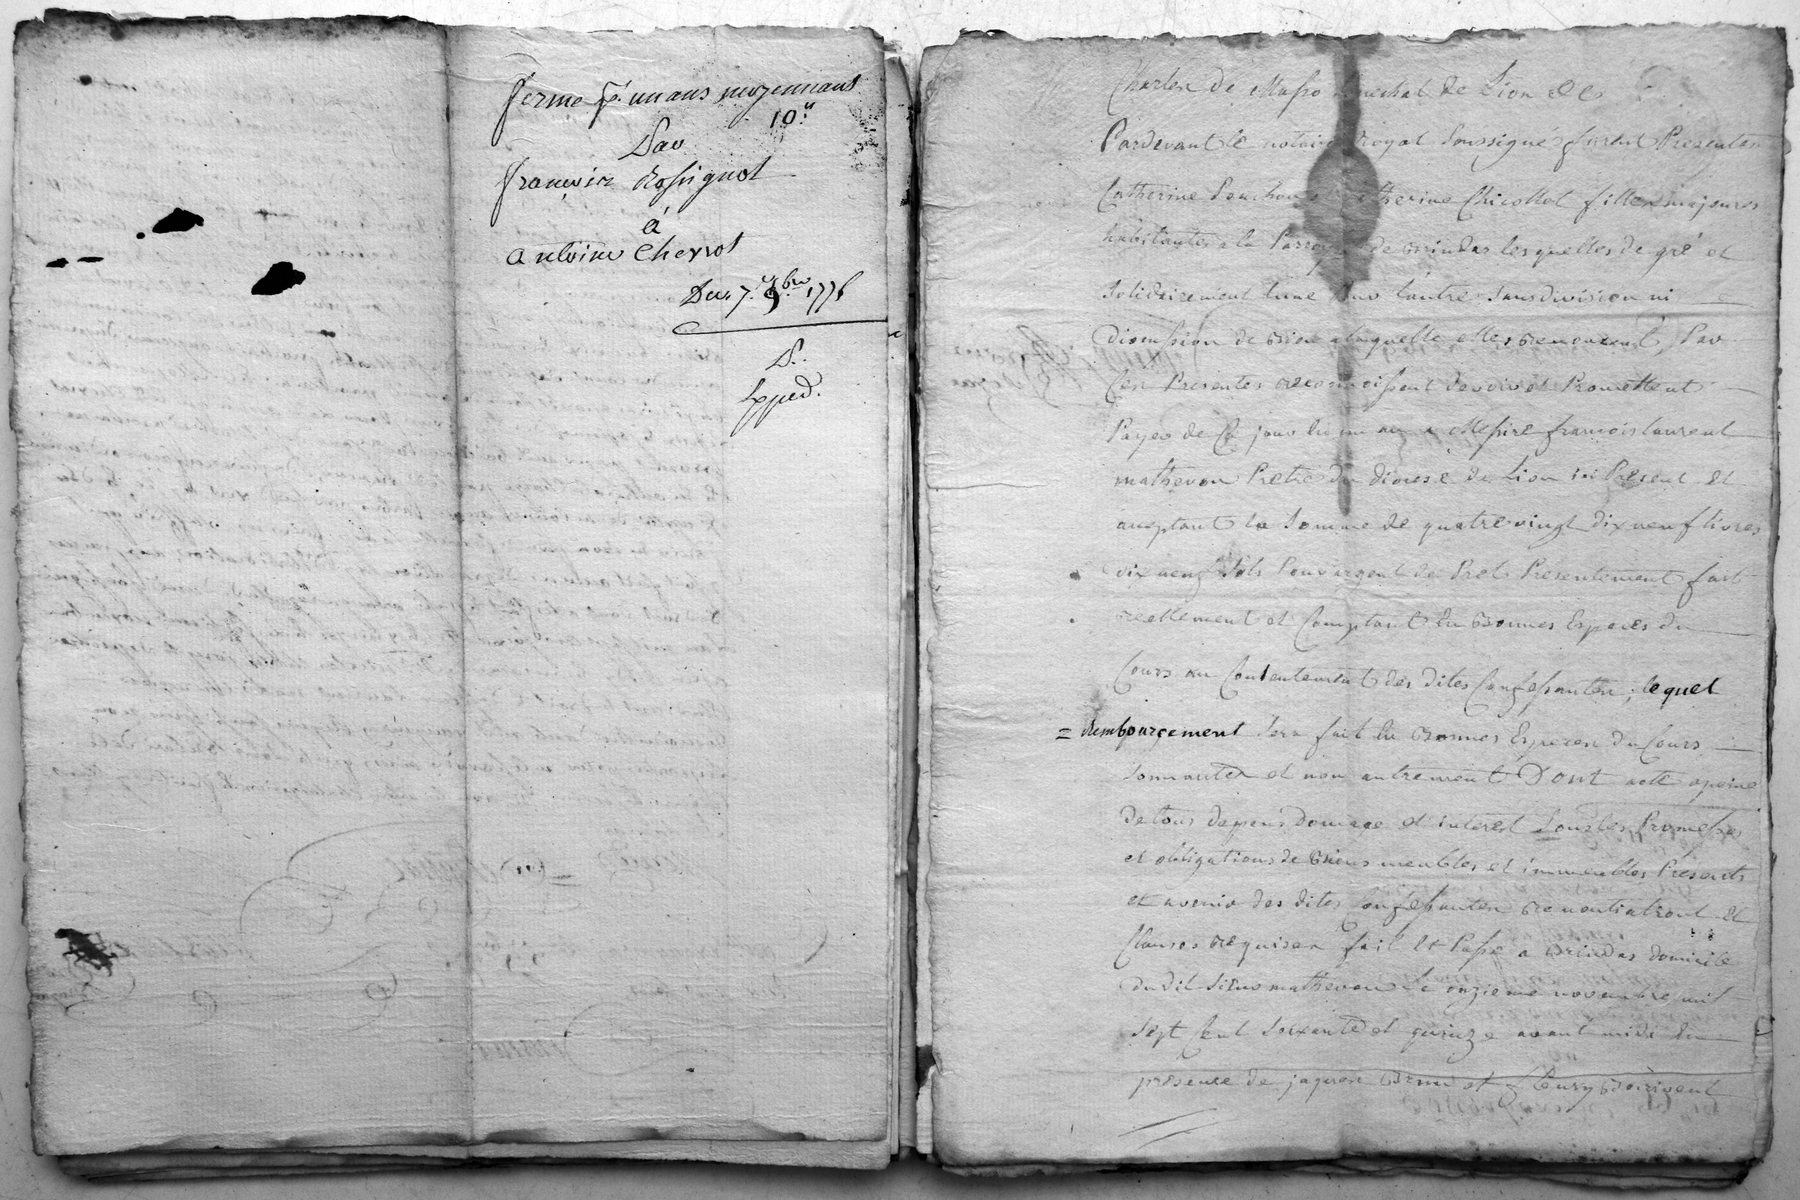 ferme p. un ans moyennant
10.tt
Par
françois Rossignol
à
antoine Chervol
Du 7. 9.bre 1776
Exped.
Charles de Masso Senechal de Lion &es
Pardevant le notaire royal soussigné furent Presentes
Catherine Catherine Chicottot filles majeures
habitantes a la Parroisse de Brindas lesquelles de gré et
Solidairement l'une pour l'autre sans division ni
discussion de Biens alaquelle elles Renoncent, Par
Ces Presentes Reconnoissent devoir et Promettent
Payer de Ce jour en un an a Messire francois laurent
mathevon Pretre du diocese de Lion ici Present et
acceptant la Somme de quatre vingt dix neuf livres
dix neuf Sols Pour argent de Pret Presentement fait
reellement et Comptant En Bonnes Especes du
Cours au Contentement des dites Confessantes ; lequel
= Rembourcement Sera fait En Bonnes Especes du Cours
Sonnantes et non autrement Dont acte apeine
de tous depens domage et interest Sous les Promesses
et obligations de Biens meubles et immeubles Presents
et avenir des dites Confessantes Et
Clauses Requises fait Et Passé a Brindas domicile
du dit Sieur mathevon le onzieme novembre mil
Sept Cent Soixante et quinze avant midi En
presence de jaques Brun et fleury